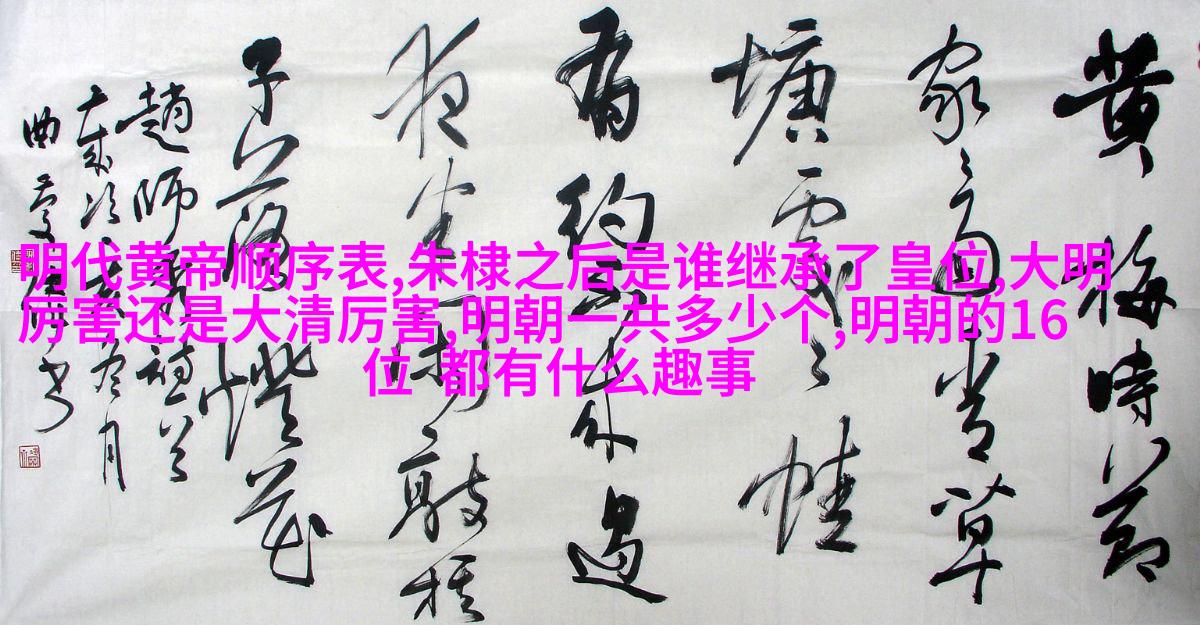 明代黄帝顺序表,朱棣之后是谁继承了皇位,大明
厉害还是大清厉害,明朝一共多少个,明朝的16
位 都有什么趣事
黄梅時節
家々雨青草
塘處々蛙
有約不來過
夜半敲棋
子落燈花
趙師
冬月